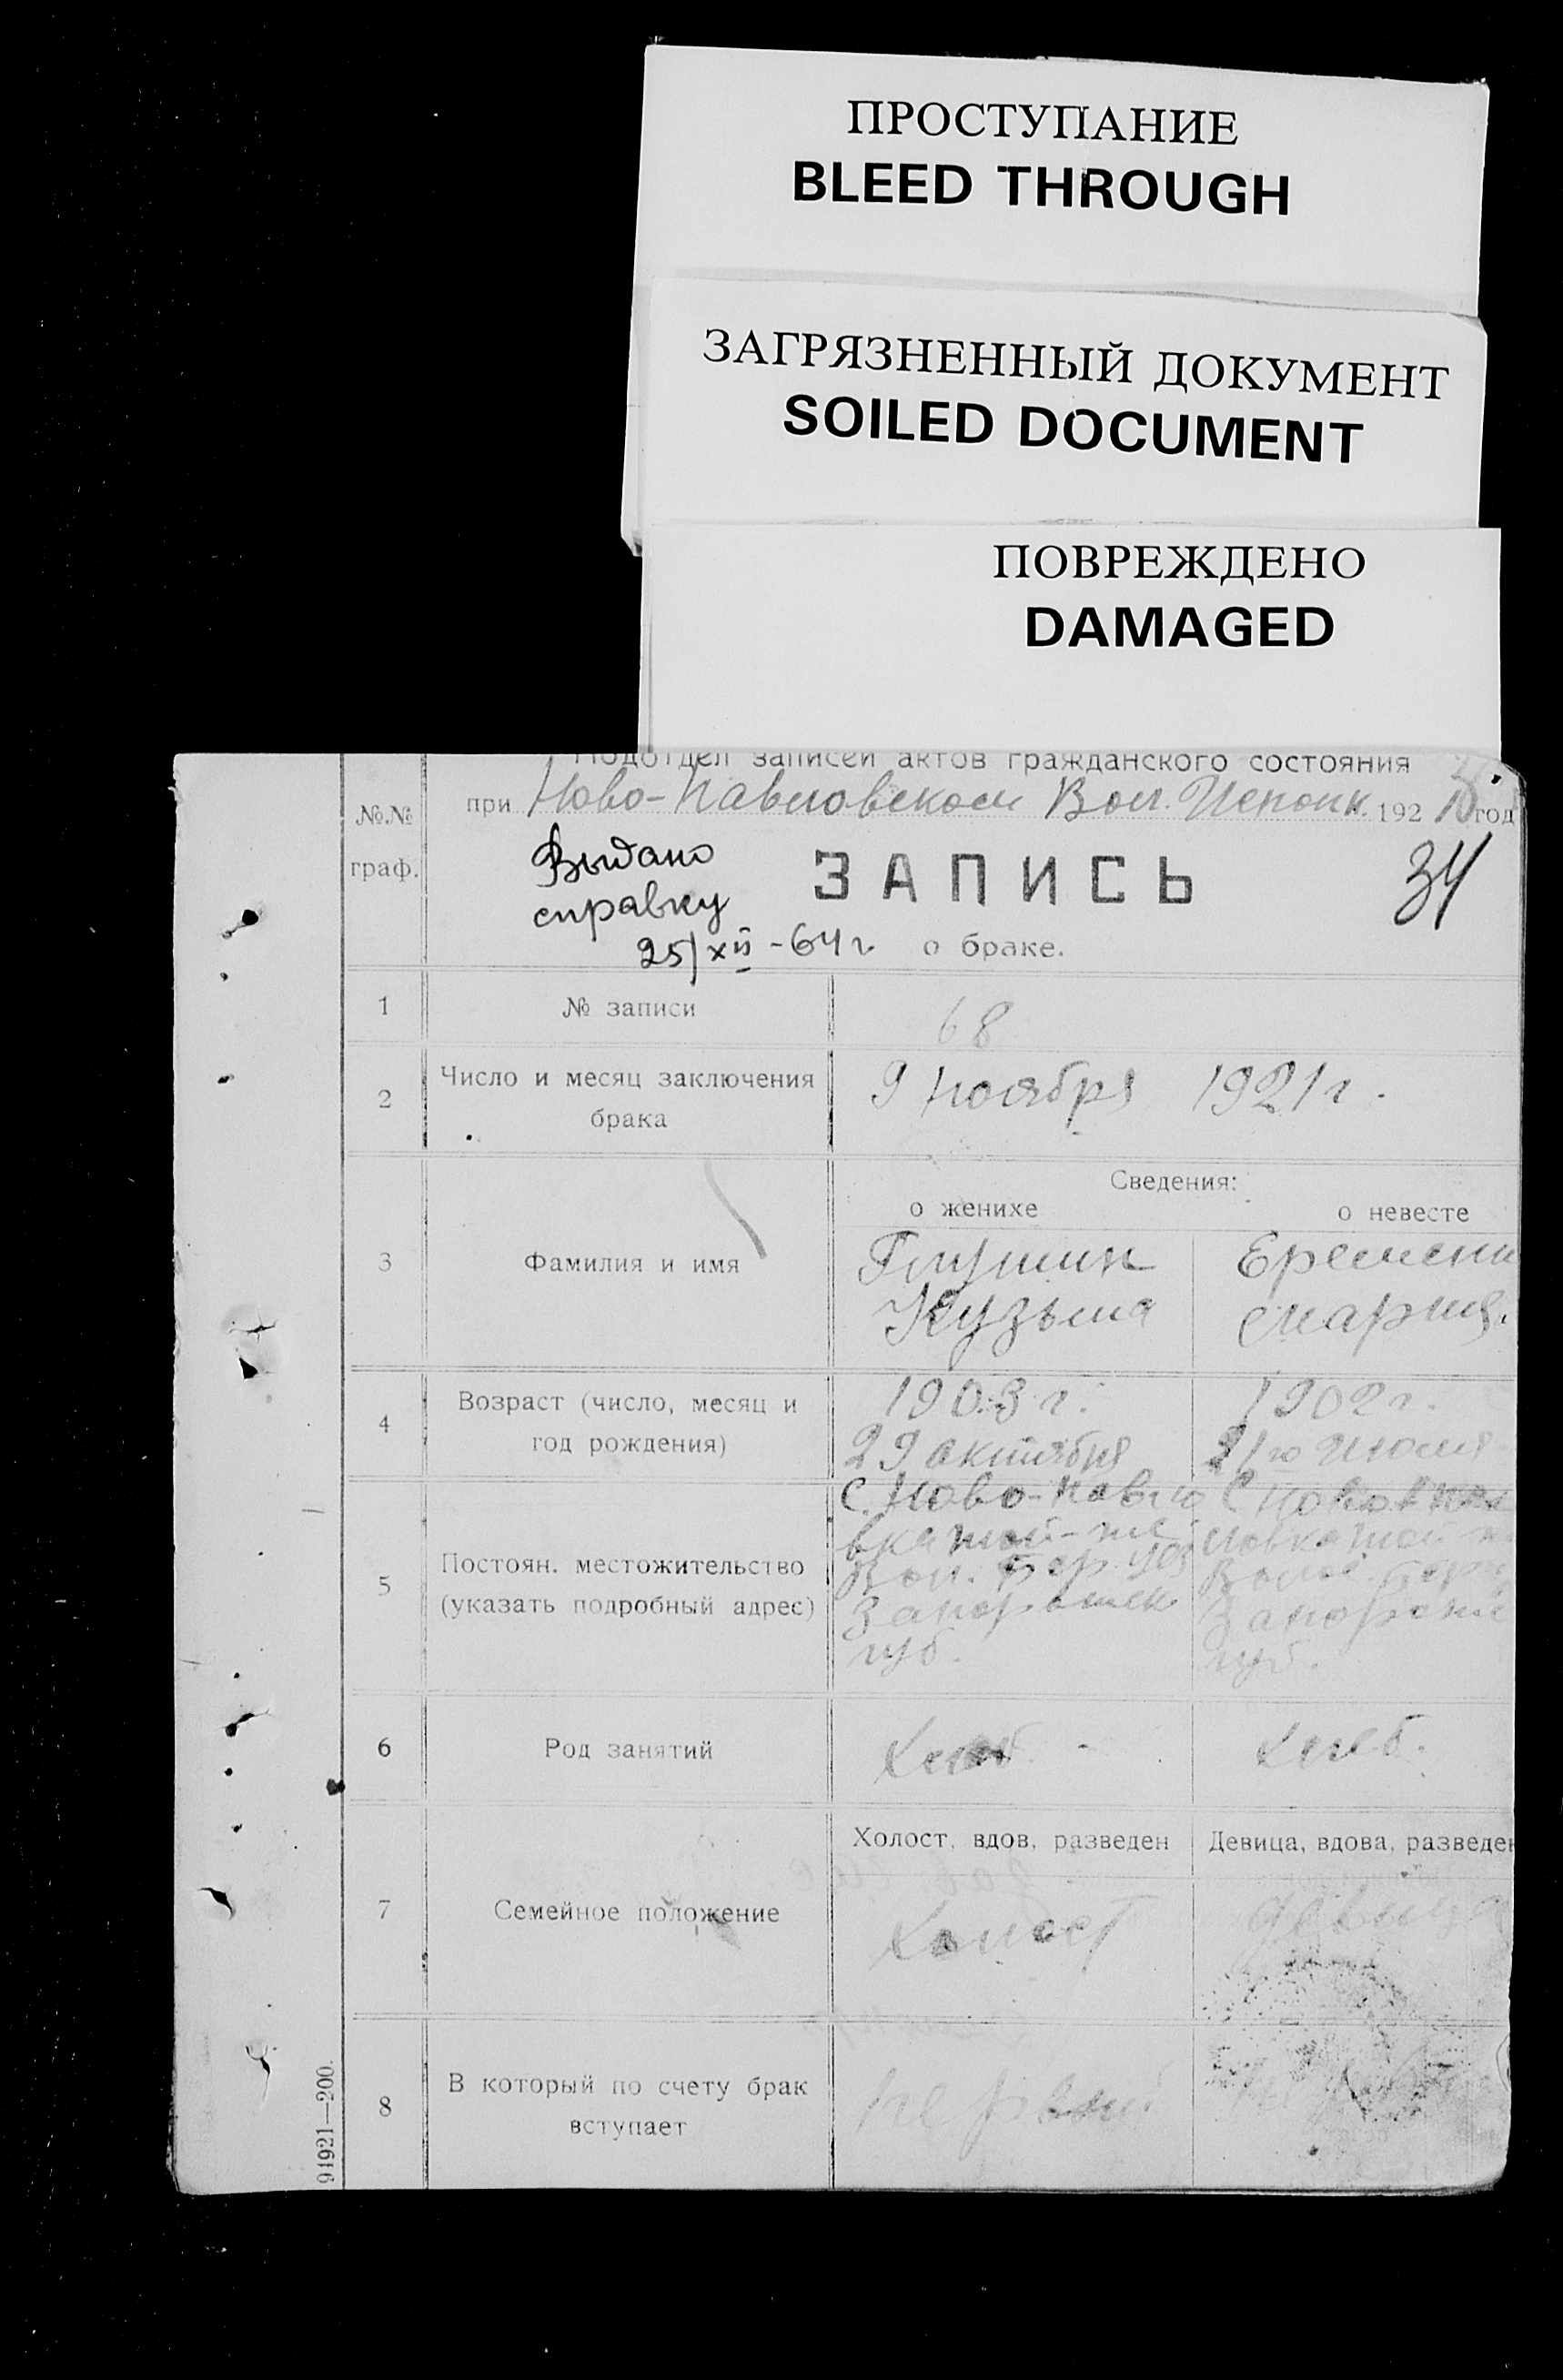 ПРОСТУПАНИЕ
BLEED THROUGH
ЗАГРЯЗНЕННЫЙ ДОКУМЕНТ
SOILED DOCUMENT
ПОВРЕЖДЕНО
DAMAGED
Подотдел записей актов гражданского состояния
при Ново-Павловском Вол. Исполк. 192 год
№№
граф.
Выдано
справку
25/XII-64 г
ЗАПИСЬ
34
о браке.
1 № записи 68
2 Число и месяц заключения
брака
9 ноября 1921 г.
Сведения:
о женихе о невесте
3 Фамилия и имя
Еремени
Кузьма Мария.
4 Возраст (число, месяц и
год рождения)
1903 г. 1902 г.
29 октября 21 го июля
5 Постоян. местожительство
(указать подробный адрес)
с. Ново-Павло с
вка той-же ловка той
Вол. Бер. уез Волос. Берд
Запорожск Запорож
губ. губ.
6 Род занятий
Хлеб. Хлеб.
Холост, вдов, разведен Девица, вдова, разведен
7 Семейное положение
Холост девица
8 В который по счету брак
вступает
первый
91921—200.